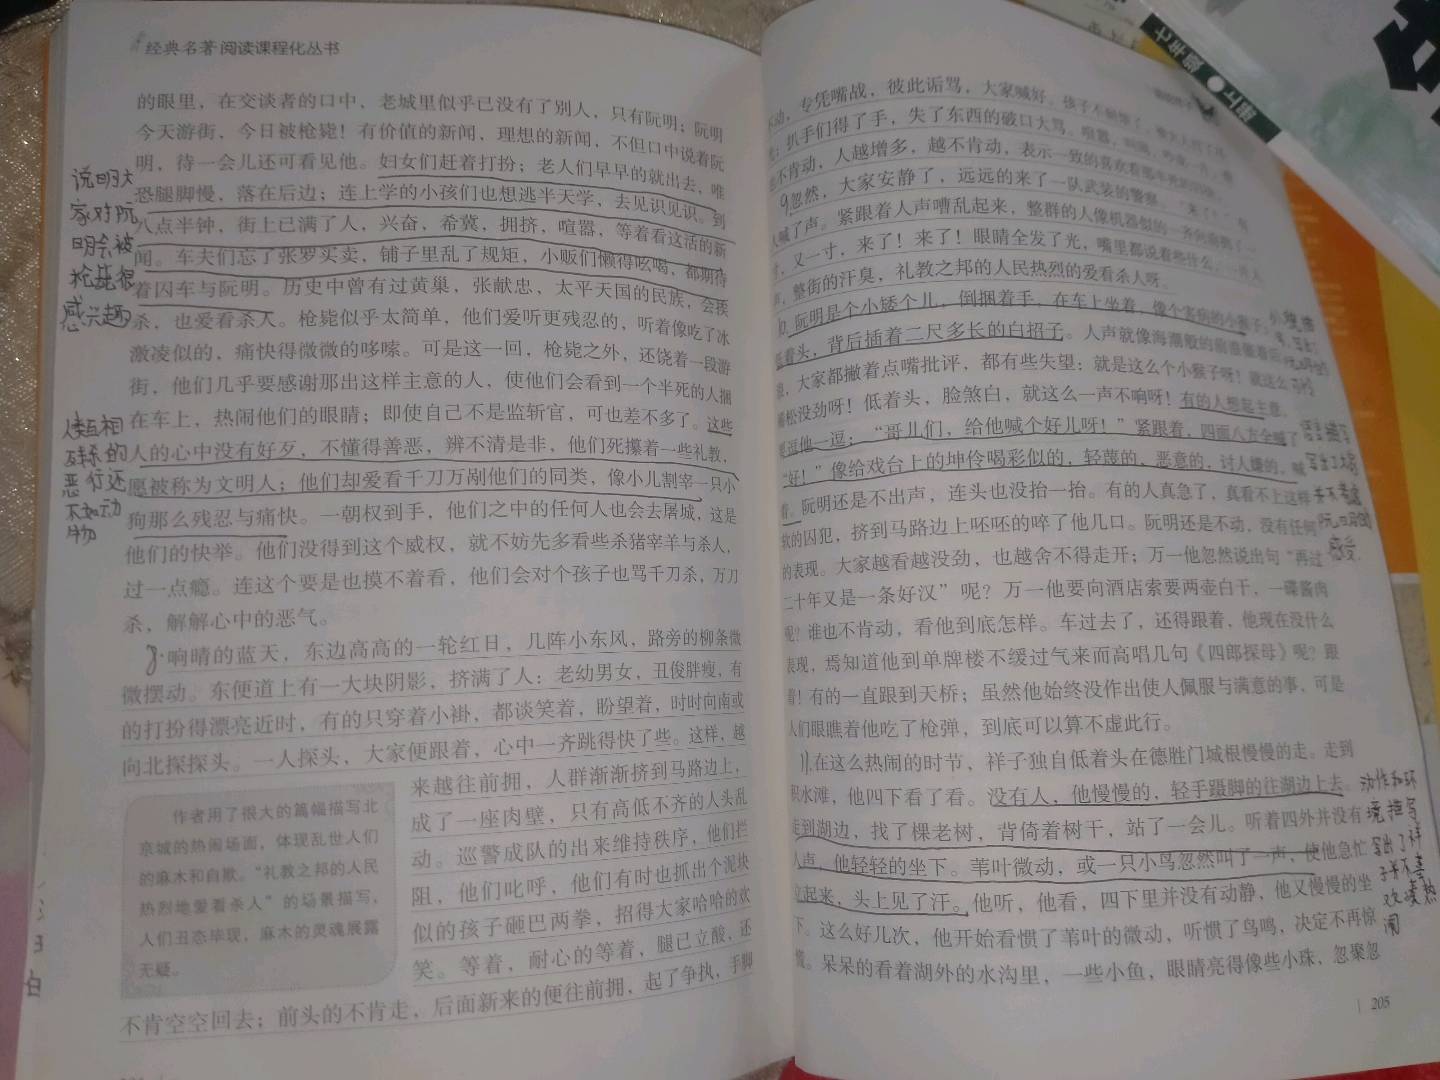 经典名著阅读课程化丛书
的眼里，在交谈者的口中，老城里似乎已没有了别人，只有阮明；阮明
今天游街，今日被枪毙！有价值的新闻，理想的新闻，不但口中说着阮
明，待一会儿还可看见他。妇女们赶着打扮；老人们早早的就出去，唯
恐腿脚慢，落在后边；连上学的小孩们也想逃半天学，去见识见识。到
八点半钟，街上已满了人，兴奋，希冀，拥挤，喧嚣，等着看这活的新
闻。车夫们忘了张罗买卖，铺子里乱了规矩，小贩们懒得吆喝，都期待
着囚车与阮明。历史中曾有过黄巢，张献忠，太平天国的民族，会挨
杀，也爱看杀人。枪毙似乎太简单，他们爱听更残忍的，听着像吃了冰
激凌似的，痛快得微微的哆嗦。可是这一回，枪毙之外，还饶着一段游
街，他们几乎要感谢那出这样主意的人，使他们会看到一个半死的人捆
在车上，热闹他们的眼睛；即使自己不是监斩官，可也差不多了。这些
人的心中没有好歹，不懂得善恶，辨不清是非，他们死攥着一些礼教，
愿被称为文明人；他们却爱看千刀万剐他们的同类，像小儿割宰一只小
狗那么残忍与痛快。一朝权到手，他们之中的任何人也会去屠城，这是
他们的快举。他们没得到这个威权，就不妨先多看些杀猪宰羊与杀人，
过一点瘾。连这个要是也摸不着看，他们会对个孩子也骂千刀杀，万刀
杀，解解心中的恶气。
8.响晴的蓝天，东边高高的一轮红日，几阵小东风，路旁的柳条微
微摆动。东便道上有一大块阴影，挤满了人：老幼男女，丑俊胖瘦，有
的打扮得漂亮近时，有的只穿着小褂，都谈笑着，盼望着，时时向南或
向北探探头。一人探头，大家便跟着，心中一齐跳得快了些。这样，越
来越往前拥，人群渐渐挤到马路边上，
成了一座肉壁，只有高低不齐的人头乱
动。巡警成队的出来维持秩序，他们拦
阻，他们叱呼，他们有时也抓出个泥块
似的孩子砸巴两拳，招得大家哈哈的欢
笑。等着，耐心的等着，腿已立酸，还
不肯空空回去；前头的不肯走，后面新来的便往前拥，起了争执，手脚
作者用了很大的篇幅描写北
京城的热闹场面，体现乱世人们
的麻木和自欺。“礼教之邦的人民
热烈地爱看杀人”的场景描写，
人们丑态毕现，麻木的灵魂展露
无疑。
说明大
家对阮
明会被
枪毙很
感兴趣
人类互相
残杀的
恶行还
不如动
物
动，专凭嘴战，彼此诟骂，大家喊好。孩子不耐烦了，
扒手们得了手，失了东西的破口大骂。喧嚣，叫闹，
不肯动，人越增多，越不肯动，表示一致的喜欢看那半死的囚徒。
9.忽然，大家安静了，远远的来了一队武装的警察。“来了！”有
人喊了声。紧跟着人声嘈乱起来，整群的人像机器似的一齐向前拥了一
寸，又一寸，来了！来了！眼睛全发了光，嘴里都说着些什么，一片人
声，整街的汗臭，礼教之邦的人民热烈的爱看杀人呀。
10.阮明是个小矮个儿，倒捆着手，在车上坐着，像个害病的小猴子；
低着头，背后插着二尺多长的白招子。人声就像海潮般的前浪催着后
浪，大家都撇着点嘴批评，都有些失望：就是这么个小猴子呀！就这么
稀松没劲呀！低着头，脸煞白，就这么一声不响呀！有的人想起主意，
要逗他一逗：“哥儿们，给他喊个好儿呀！”紧跟着，四面八方全喊了
“好！”像给戏台上的坤伶喝彩似的，轻蔑的，恶意的，讨人嫌的，喊
着。阮明还是不出声，连头也没抬一抬。有的人真急了，真看不上这样
软的囚犯，挤到马路边上呸呸的啐了他几口。阮明还是不动，没有任何
的表现。大家越看越没劲，也越舍不得走开；万一他忽然说出句“再过
二十年又是一条好汉”呢？万一他要向酒店索要两壶白干，一碟酱肉
呢？谁也不肯动，看他到底怎样。车过去了，还得跟着，他现在没什么
表现，焉知道他到单牌楼不缓过气来而高唱几句《四郎探母》呢？跟
着！有的一直跟到天桥；虽然他始终没作出使人佩服与满意的事，可是
人们眼瞧着他吃了枪弹，到底可以算不虚此行。
11.在这么热闹的时节，祥子独自低着头在德胜门城根慢慢的走。走到
积水滩，他四下看了看。没有人，他慢慢的，轻手蹑脚的往湖边上去。
走到湖边，找了棵老树，背倚着树干，站了一会儿。听着四外并没有
人声，他轻轻的坐下。苇叶微动，或一只小鸟忽然叫了一声，使他急忙
立起来，头上见了汗。他听，他看，四下里并没有动静，他又慢慢的坐
下。这么好几次，他开始看惯了苇叶的微动，听惯了鸟鸣，决定不再惊
慌。呆呆的看着湖外的水沟里，一些小鱼，眼睛亮得像些小珠，忽聚忽
205
语言描写
写出了大家
并不考虑
阮明的
感受
动作和环
境描写
写出了祥
子并不喜
欢凑热
闹